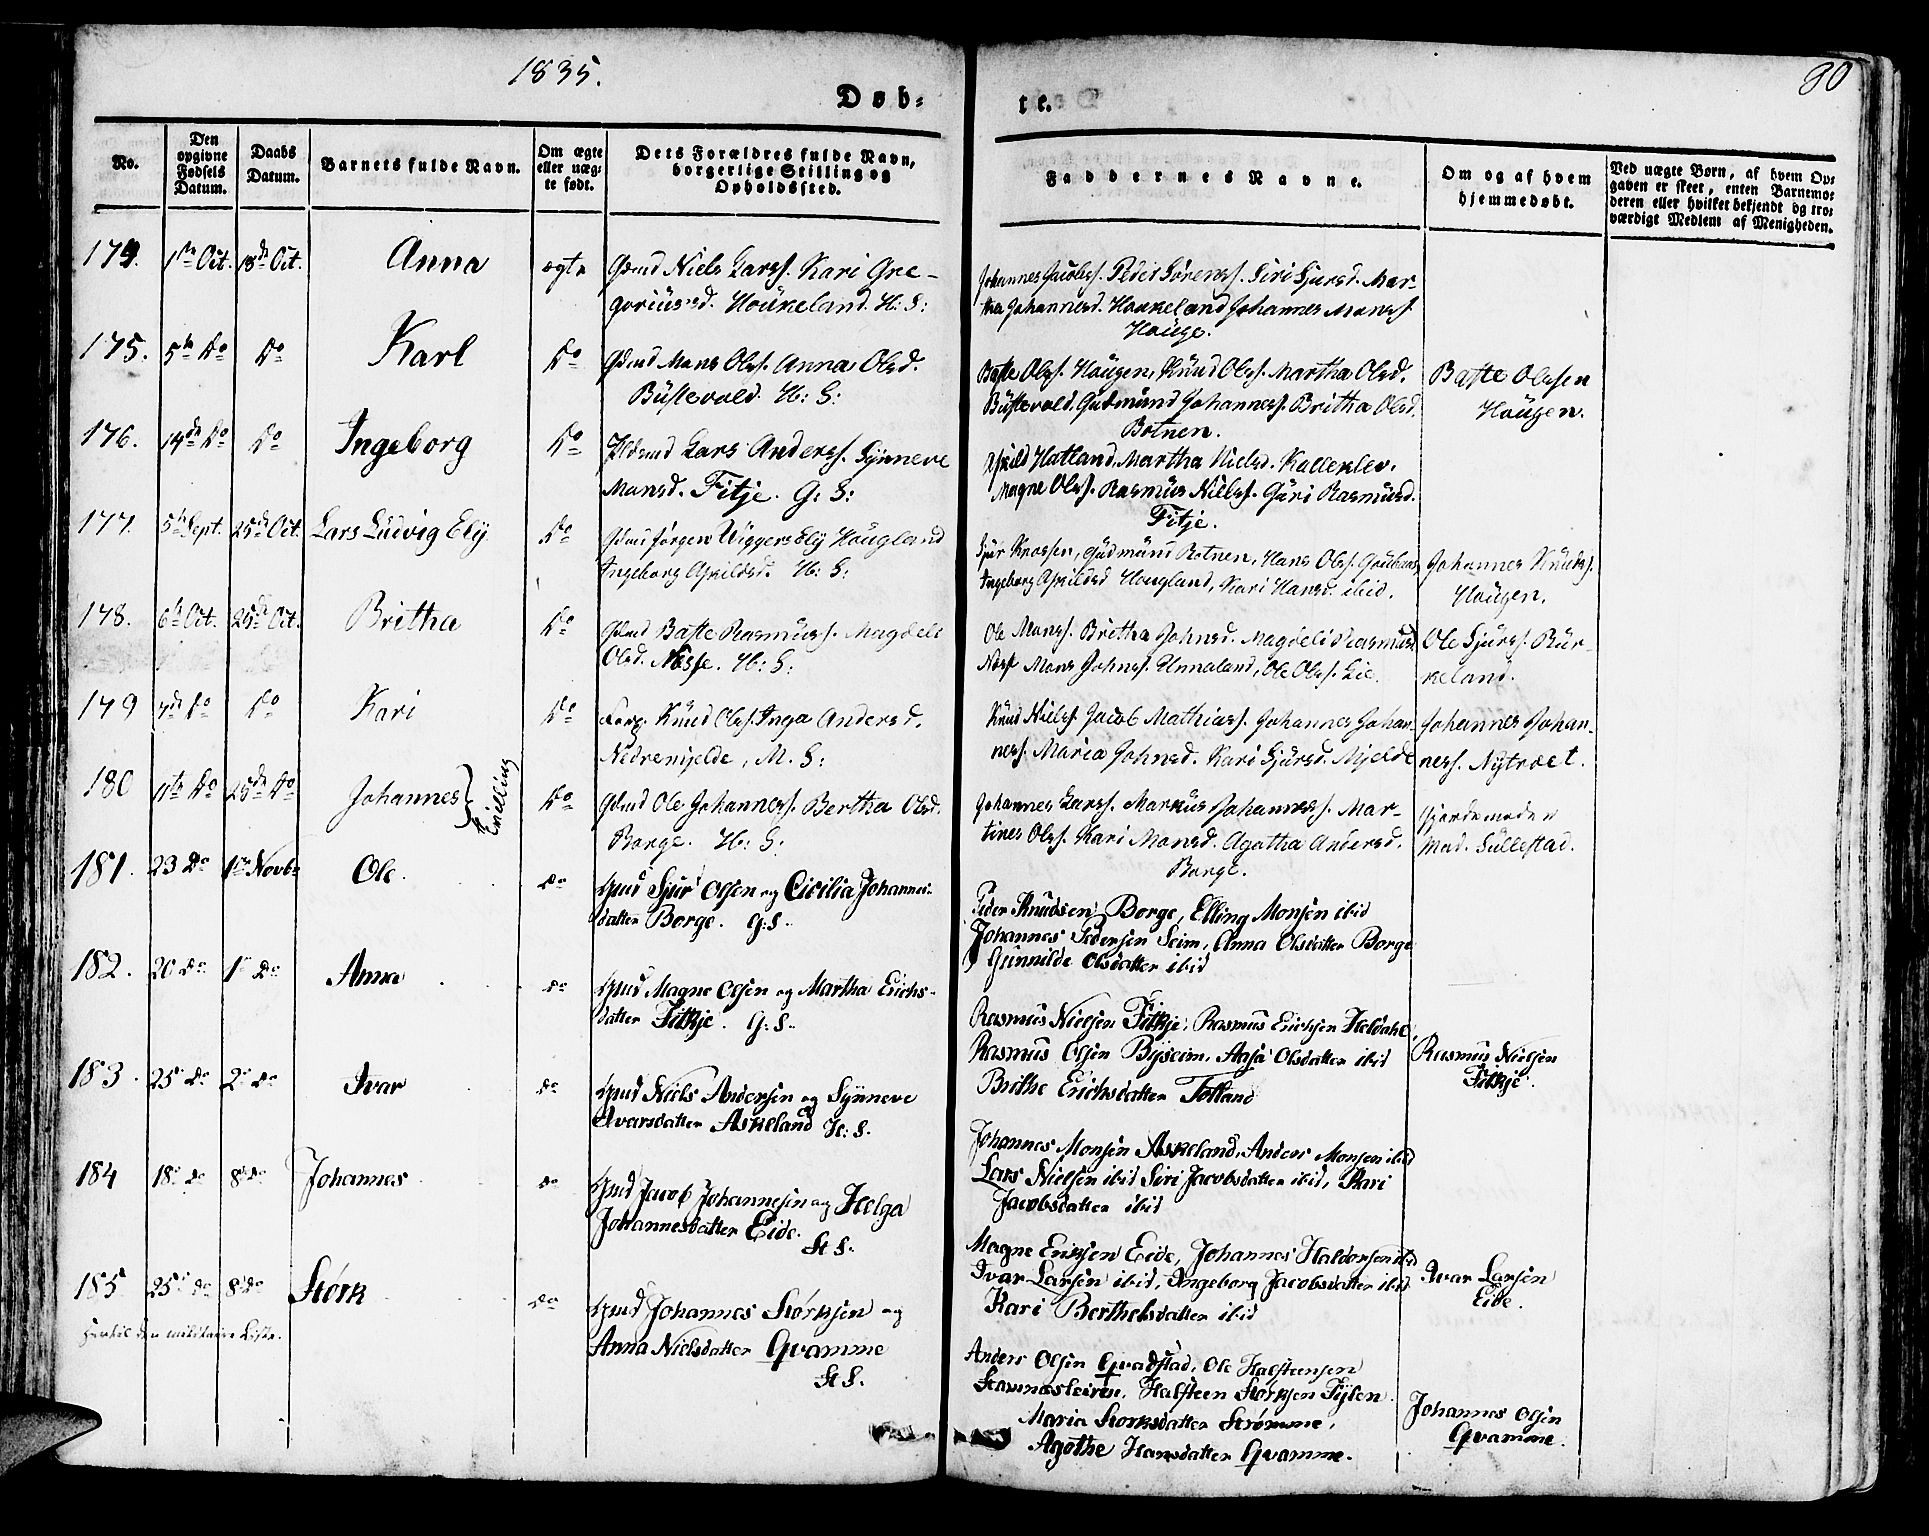 1835.
80
Døb-
te.
No.
Den opgivne Fødsels Datum.
Daabs Datum.
Barnets fulde Navn.
Om ægte eller uægte født.
Dets Forældres fulde Navn, borgerlige Stilling og Opholdssted.
Faddernes Navne.
Om og af hvem hjemmedøbt.
Ved uægte Børn, af hvem Opgaven er skeet, enten Barnemoderen eller hvilket bekjendt og troværdigt Medlem af Menigheden.
174. 1ste Oct. 18de Oct. Anna ægte
Gdmd Niels Larss. Kari Gre-
goriusd. Houkeland. H: S:
Johannes Jacobss. Peder Sørenss. Siri Sjursd. Mar-
tha Johannesd. Houkeland Johannes Monss.
Houge.
175. 5te Do Do Karl Do
Gdmd Mons Olss. Anna Olsd.
Büstevold. H: S:
Baste Olss. Hougen, Knud Olss. Martha Olsd.
Büstevold. Gudmund Johanness. Britha Olsd.
Botnen.
Baste Olssen
Hougen.
176. 14de Do Do Ingeborg Do
Lars Anderss. Synneve
Monsd. Fitje. G: S:
Hatland. Martha Nielsd. Kalleklev.
Magne Olss. Rasmus Nielss. Guri Rasmusd.
Fitje.
177. 5te Sept. 25de Oct. Lars Ludvig Ely Do
Gdmd Jørgen Wiggers Ely Hougland
Ingeborg Askildsd. H: S:
Sjur Krossen, Gudmund Botnen, Hans Olss.
Ingeborg Askildsd Hougland, Kari Hansd. ibid.
Johannes Knuds.
Hougen.
178. 6te Oct. 25de Oct. Britha Do
Gdmd Baste Rasmuss. Magdeli
Olsd. Nesse. H: S:
Ole Monss. Britha Johnsd. Magdeli Rasmusd
Nesse Mons Johnss. Unnaland, Ole Olss. Lie.
Ole Sjurss. Bür-
keland.
179 7de Do Do Kari Do
Knud Olss. Inga Andersd.
Nedremjelde, M. S:
Knud Nielss. Jacob Mathiass. Johannes Johan-
ness. Maria Johnsd. Kari Sjursd. Mjelde
Johannes Johan-
ness. Nytvæt.
180 11te Do 25de Do Johannes } Tvilling Do
Gdmd Ole Johanness. Bertha Olsd.
Borge. H: S:
Johannes Larss. Markus Johanness. Mar-
tines Olss. Kari Monsd. Agatha Andersd.
Borge.
Gjordemoder
Mad. Sullestad.
181. 23 Do 1ste Novb. Ole. Do
Gmd Sjur Olsen og Cicilia Johannes-
datter Borge. G: S.
Peder Knudsen Borge, Elling Monsen ibid
Johannes Pedersen Seim, Anna Olsdatter Borge
Gunnilde Olsdatter ibid
182. 20 Do 1ste Do Anna Do
Gmd Magne Olsen og Martha Erichs-
datter Fitkje. G: S.
Rasmus Nielsen Fitkje, Rasmus Erichsen Heldahl
Rasmus Olsen Byseim, Aasa Olsdatter ibid
Brithe Erichsdatter Totland
Rasmus Nielsen
Fitkje.
183. 25 Do 2 Do Ivar Do
Gmd Niels Andersen og Synneve
Ivarsdatter Askeland H: S.
Johannes Monsen Askeland, Anders Monsen ibid
Lars Nielsen ibid Siri Jacobsdatter ibid, Kari
Jacobsdatter ibid
184 18 Do 8 Do Johannes Do
Gmd Jacob Johannesen og Helga
Johannesdatter Eide.
St S.
Magne Eriksen Eide, Johannes Haldorsen ibid
Ivar Larsen ibid, Ingeborg Jacobsdatter ibid
Kari Berthelsdatter ibid
Ivar Larsen
Eide.
185 25 Do 8 Do Størk Do
Hertil den militaire Liste.
Gmd Johannes Størksen og
Anna Nielsdatter Qvamme
St S.
Anders Olsen Qvadstad, Ole Halsteensen
Stamnesleiren, Halsteen Størksen Fylen
Maria Storksdatter Strømme,
Agathe Hansdatter Qvamme.
Johannes Olsen
Qvamme.